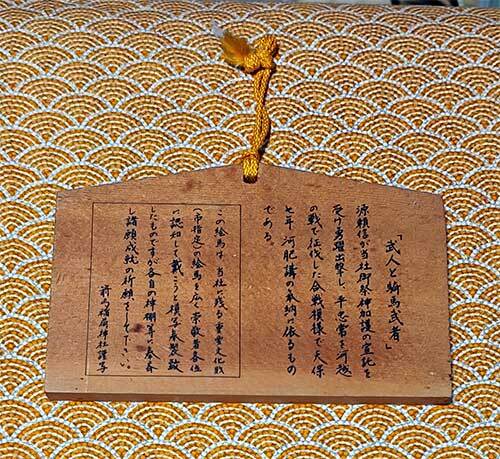 「武人と騎馬武者」
源頼信が当社御祭神加護の宣託を
受け勇躍出撃し、平忠常を河越
の戦で征伐した合戦模様で天保
七年 河肥講の奉納に依るもの
である。
この絵馬は、当社に残る重要文化財
(市指定)の絵馬を広く崇敬者各位
に認知して戴こうと模写奉製致
したものですが各自の神棚等に奉斎
し諸願成就の祈願をして下さい。
稲荷神社謹写